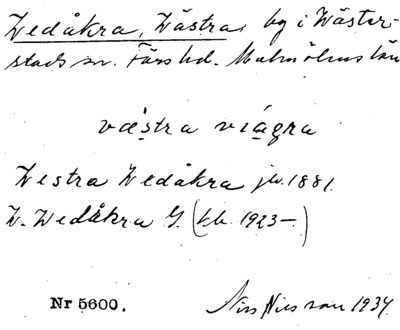 Wedåkra, Wästra, by i Wäster-
stads sn. Färs hd. Malmöhus län
västra viagra
Westra Wedåkra jb. 1881.
W. Wedåkra G. (kb. 1923—)
Nr 5600.
Nils Nilsson 1934.